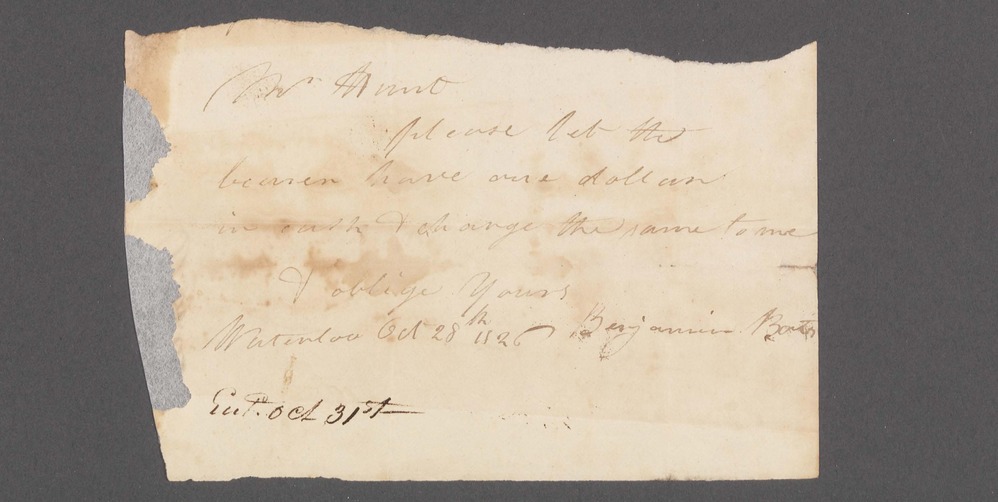 Mr Hunt
please let the
bearer have one dollar
in cash & change the same to me
& oblige Yours
Waterloo Oct 28th 1826 Benjamin
Entd. Oct 31st